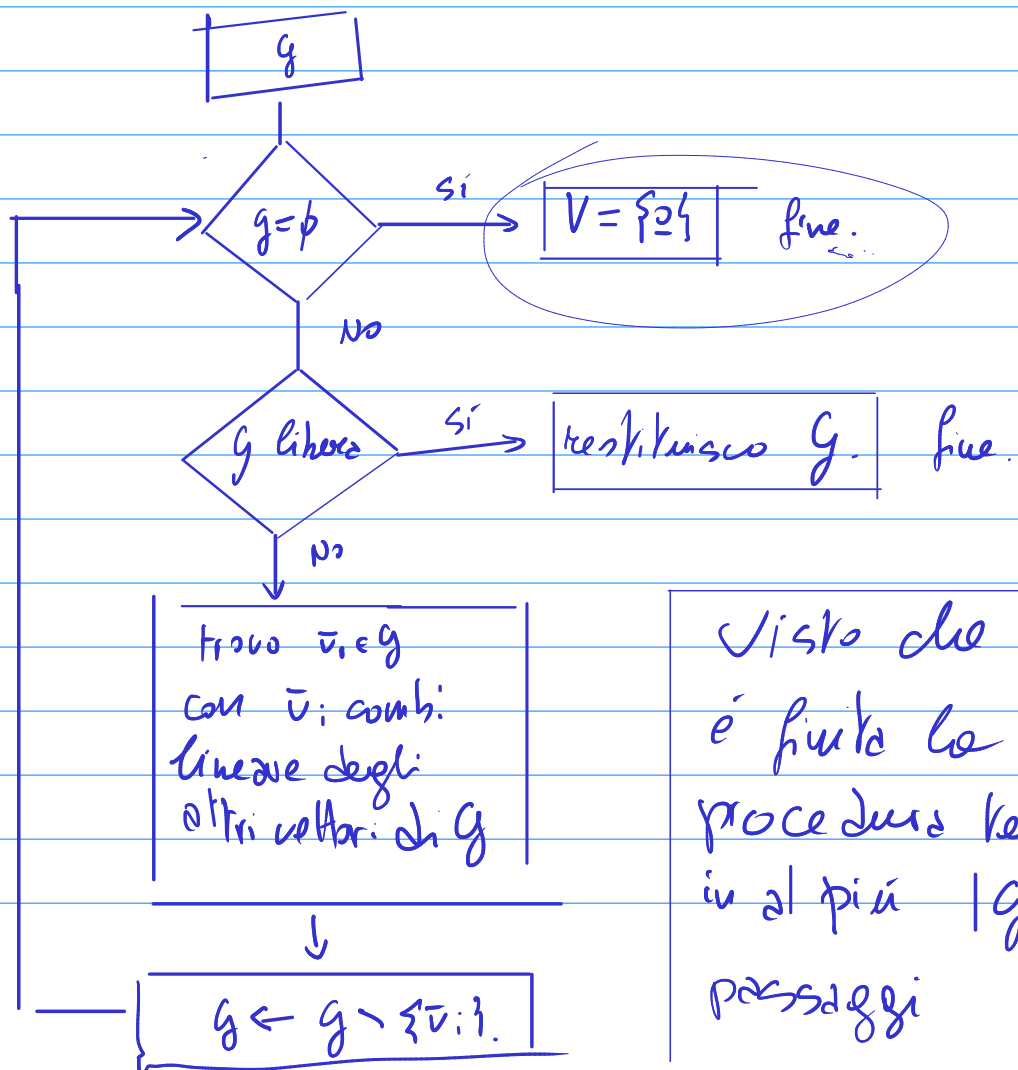 G
G = ∅
sí
V = {0}
fine.
NO
G libera
sí
restituisco G.
fine.
NO
trovo v̄ᵢ ∈ G
con v̄ᵢ combi.
lineare degli
altri vettori di G
G ← G \ {v̄ᵢ}.
Visto che
é finita la
procedura te
in al piú |G
passaggi